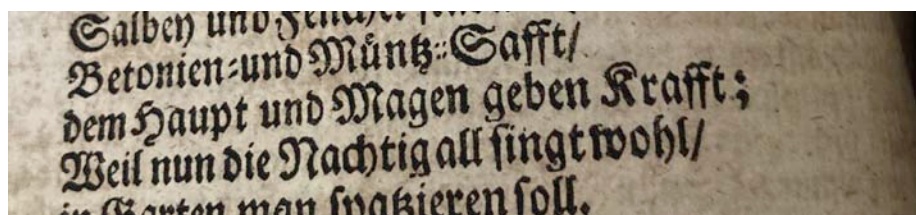 Salbey und Fenchel
Betonien-und Müntz-Safft/
dem Haupt und Magen geben Krafft;
Weil nun die Nachtigall singt wohl/
in Garten man spatzieren soll.